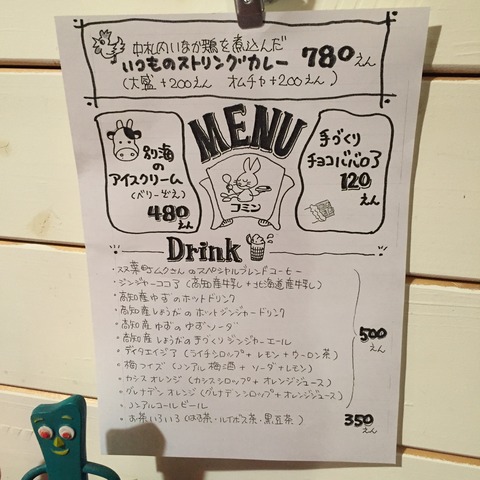 中札内いなか鶏を煮込んだ
いつものストリングカレー 780えん
(大盛+200えん オムチャ+200えん)
MENU
別海
の
アイスクリーム
(ベリーぞえ)
480
えん
コミン
手づくり
チョコババロア
120
えん
Drink
・双葉町ムクさんのスペシャルブレンドコーヒー
・ジンジャーココア(高知産生姜+北海道産牛乳)
・高知産ゆずのホットドリンク
・高知産しょうがのホットジンジャードリンク
・高知産ゆずのゆずソーダ
・高知産しょうがの手づくりジンジャーエール
・ディタエイジア(ライチシロップ+レモン+ウーロン茶)
・梅ツイズ(ノンアル梅酒+ソーダ+レモン)
・カシスオレンジ(カシスシロップ+オレンジジュース)
・グレナデンオレンジ(グレナデンシロップ+オレンジジュース)
・ノンアルコールビール
500
えん
・お茶いろいろ(はま茶・ルイボス茶・黒豆茶) 350
えん